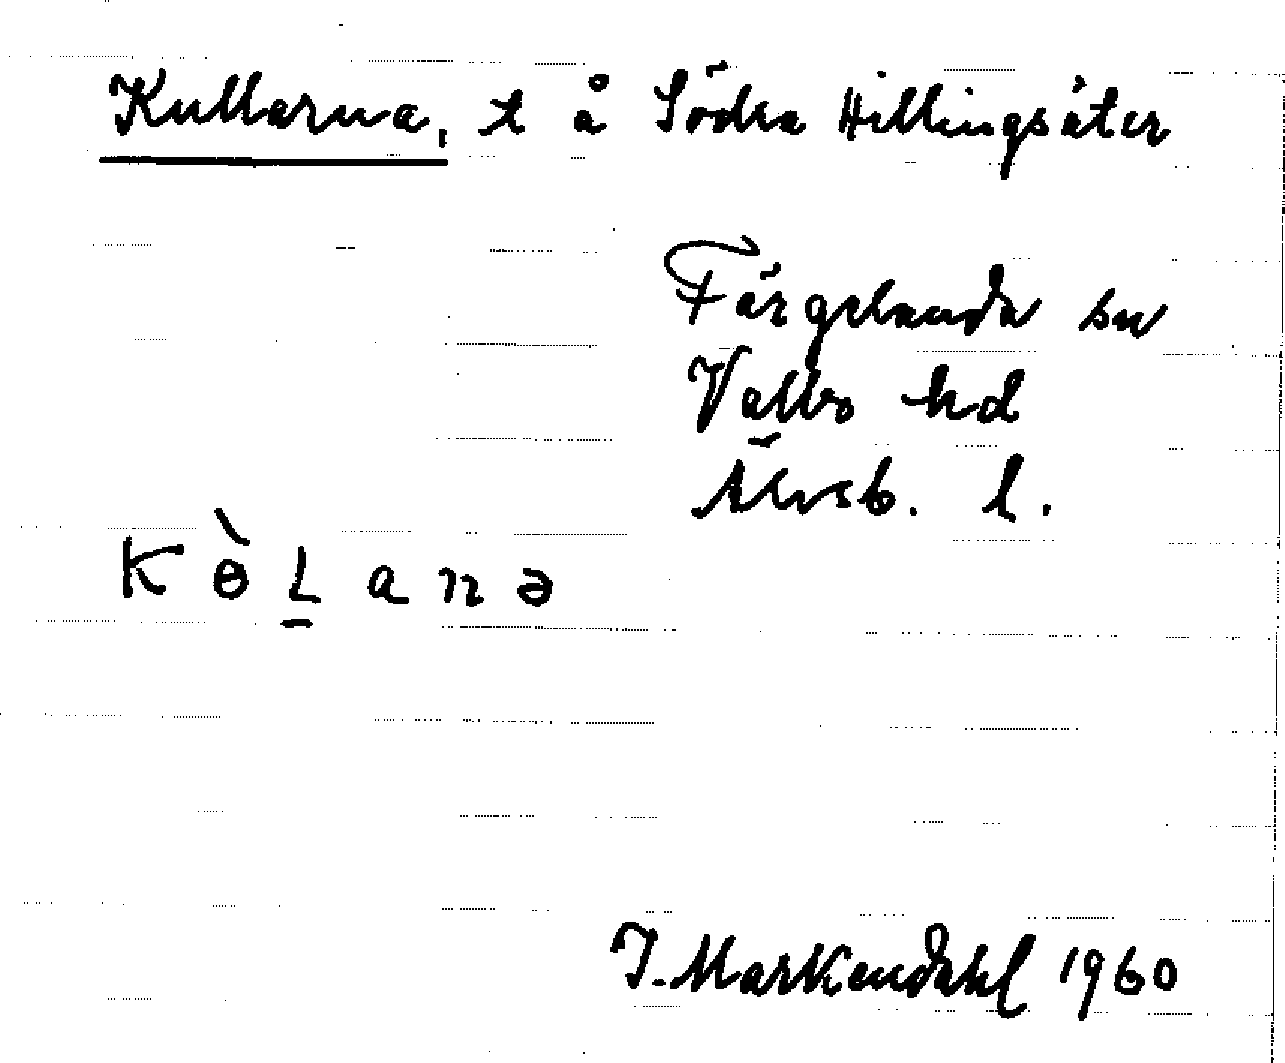 Kullarna, t å Södra Hillingsäter
Färgelanda sn
Valbo hd
Älvsb. l.
K ɵ̀ L̲ a n ə
I. Markendahl 1960